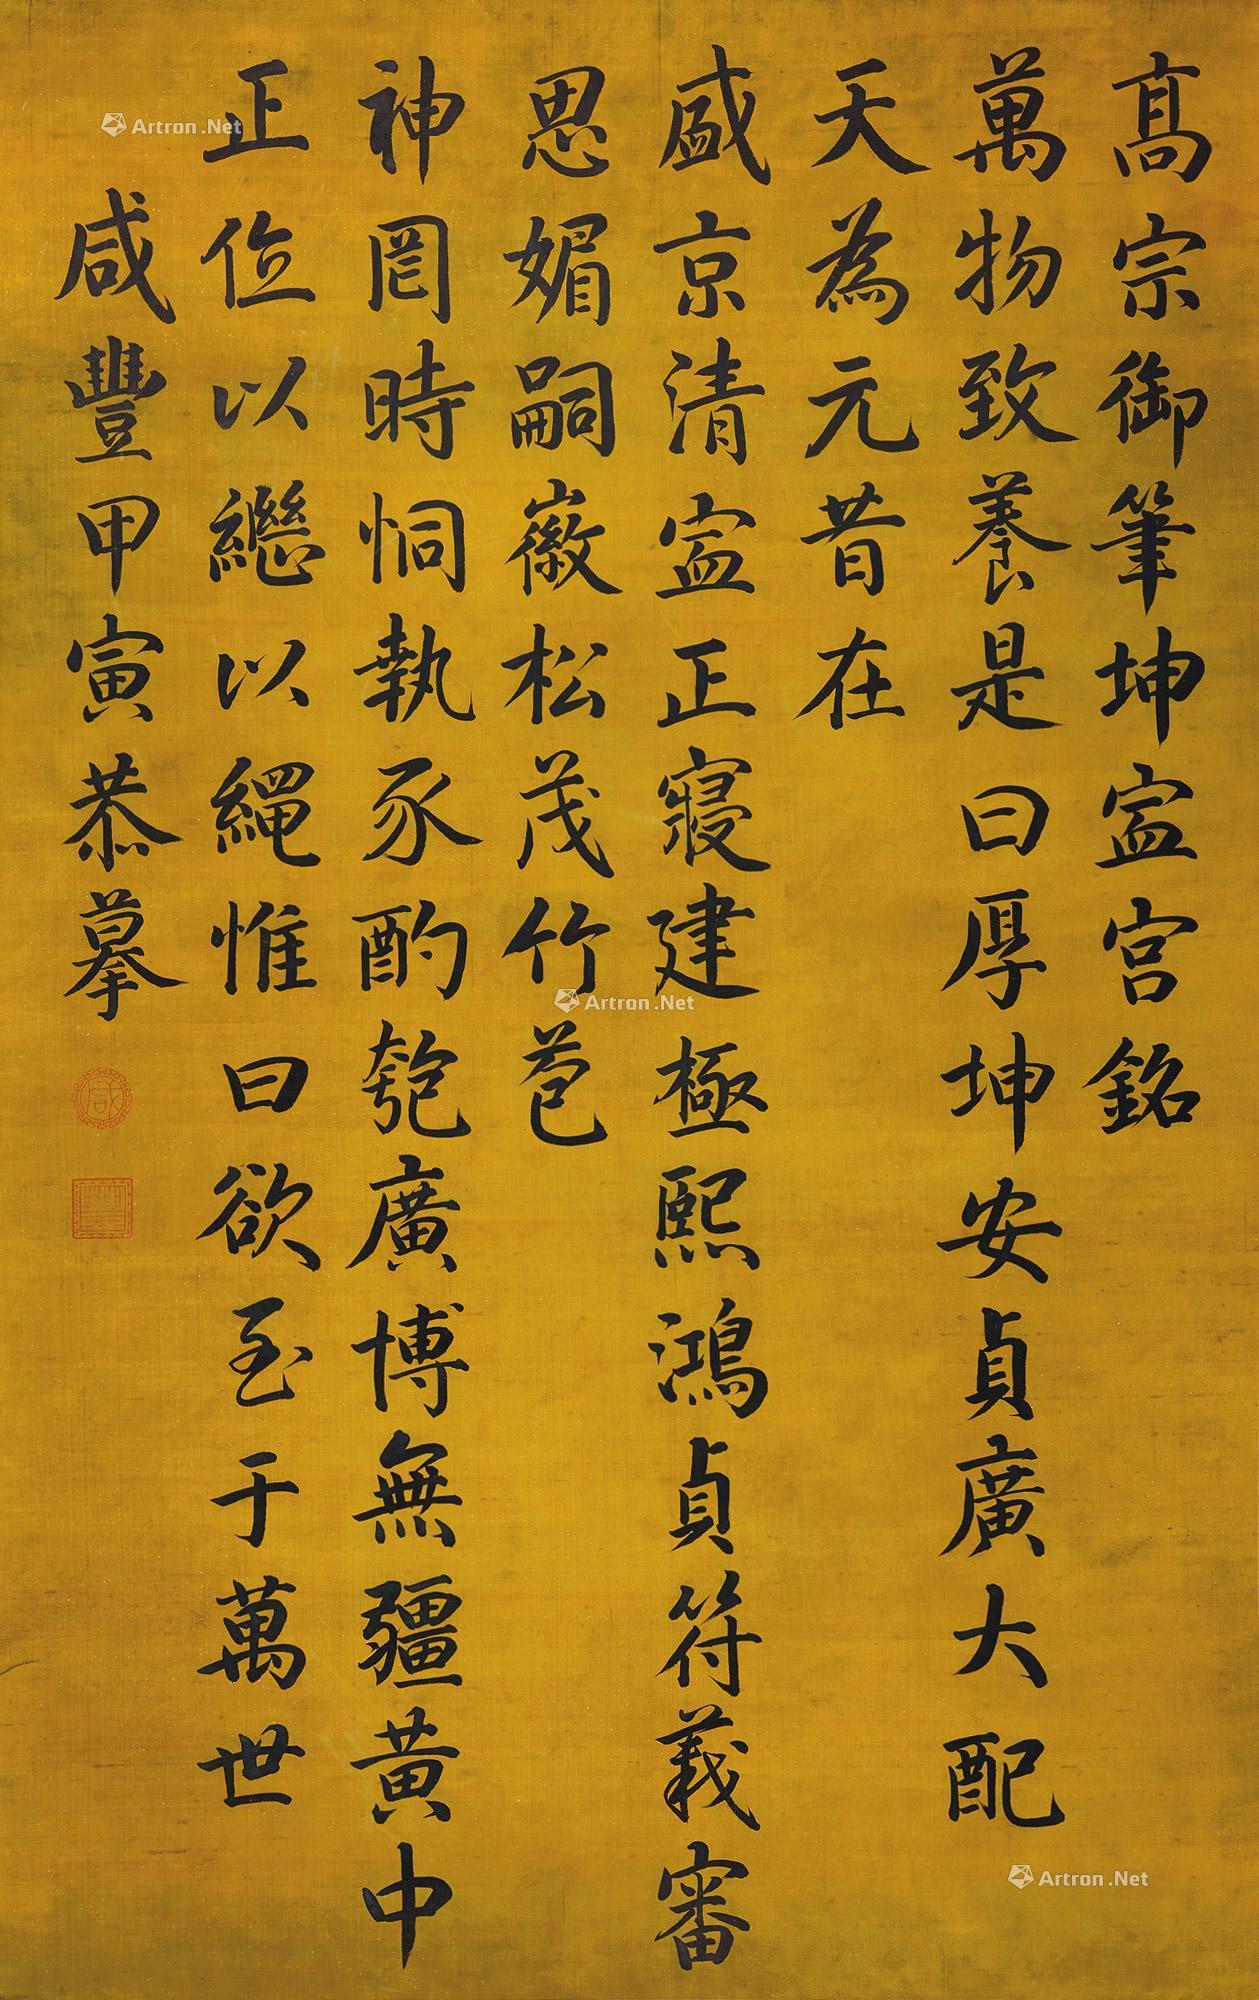 高宗御筆坤寍宫銘
萬物致養是曰厚坤安貞廣大配
天為元昔在
盛京清寍正寢建極熙鴻貞符義審
思媚嗣徽松茂竹苞
神罔時恫執豕酌匏廣博無疆黄中
正位以繼以繩惟曰欲至于萬世
咸豐甲寅恭摹
咸
Artron.Net
Artron.Net
Artron.Net